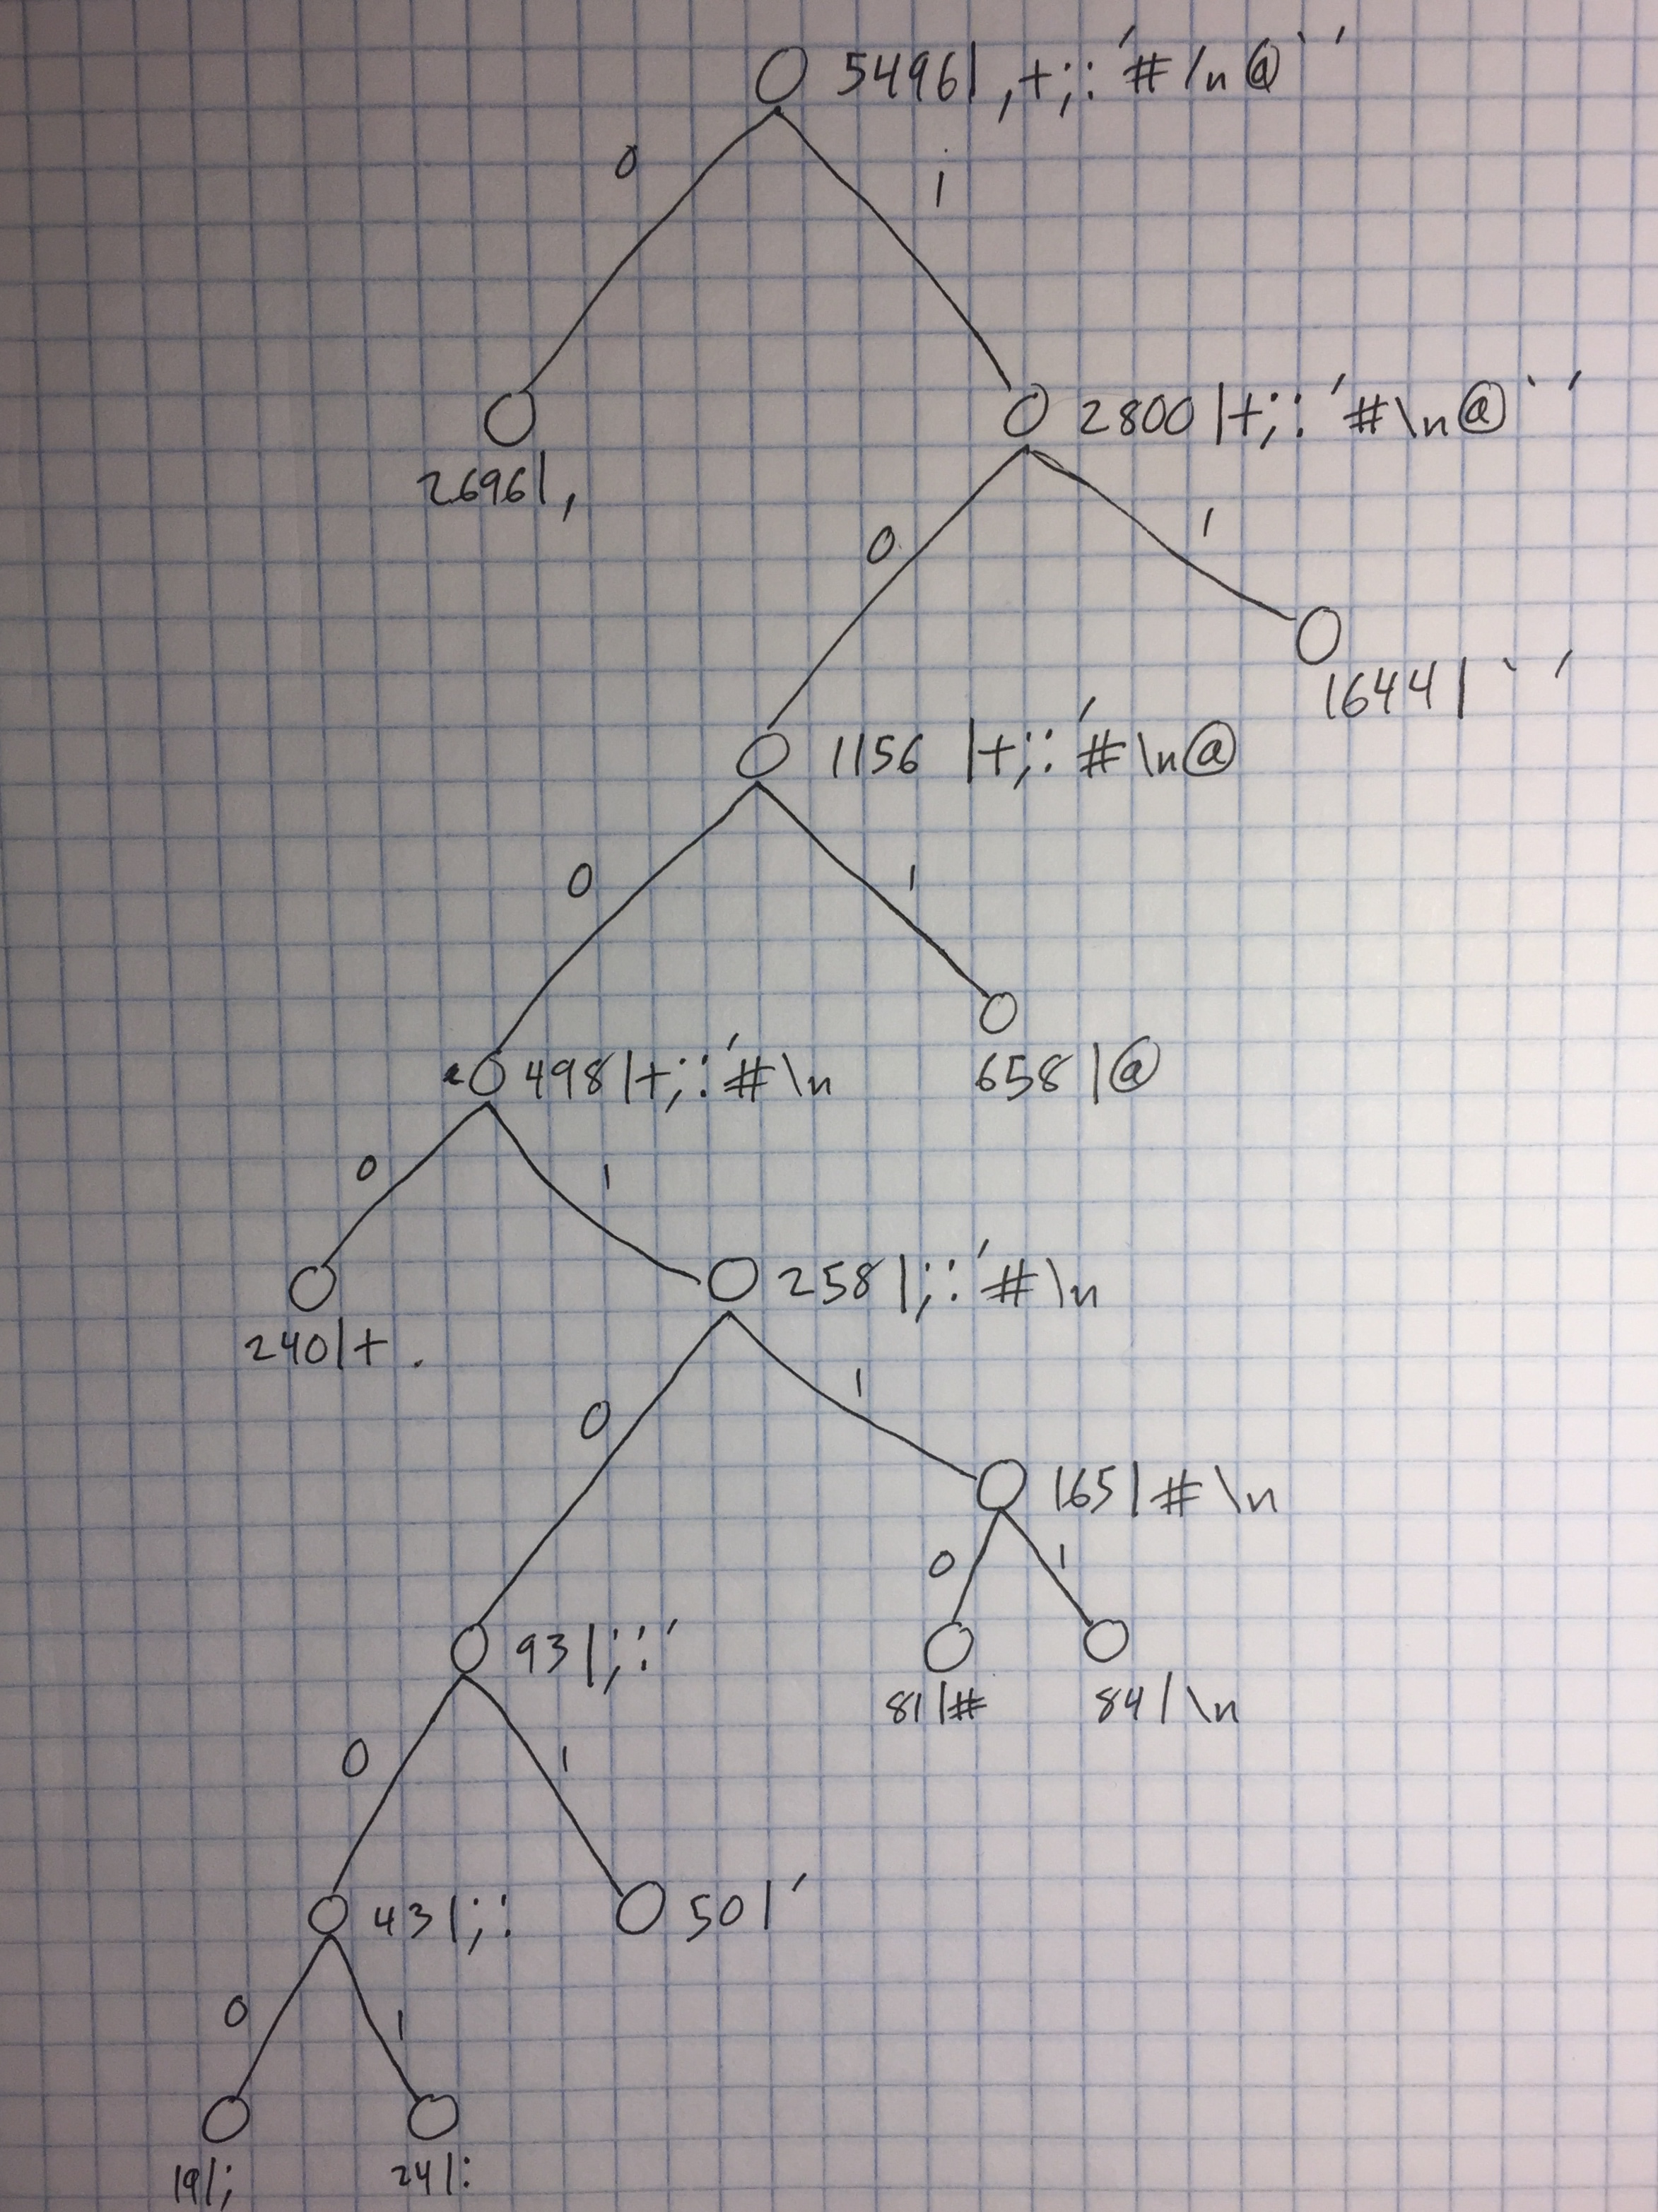 5496|,+;:'#/n@` ´
0 1
2800|+;:'#\n@` ´
2696|,
0 1
1644|` ´
1156|+;:'#\n@
0 1
498|+;:'#\n
658|@
0 1
258|;:'#\n
240|+.
0 1
165|#\n
0 1
93|;:'
81|# 84|\n
0 1
43|;: 50|'
0 1
19|; 24|: